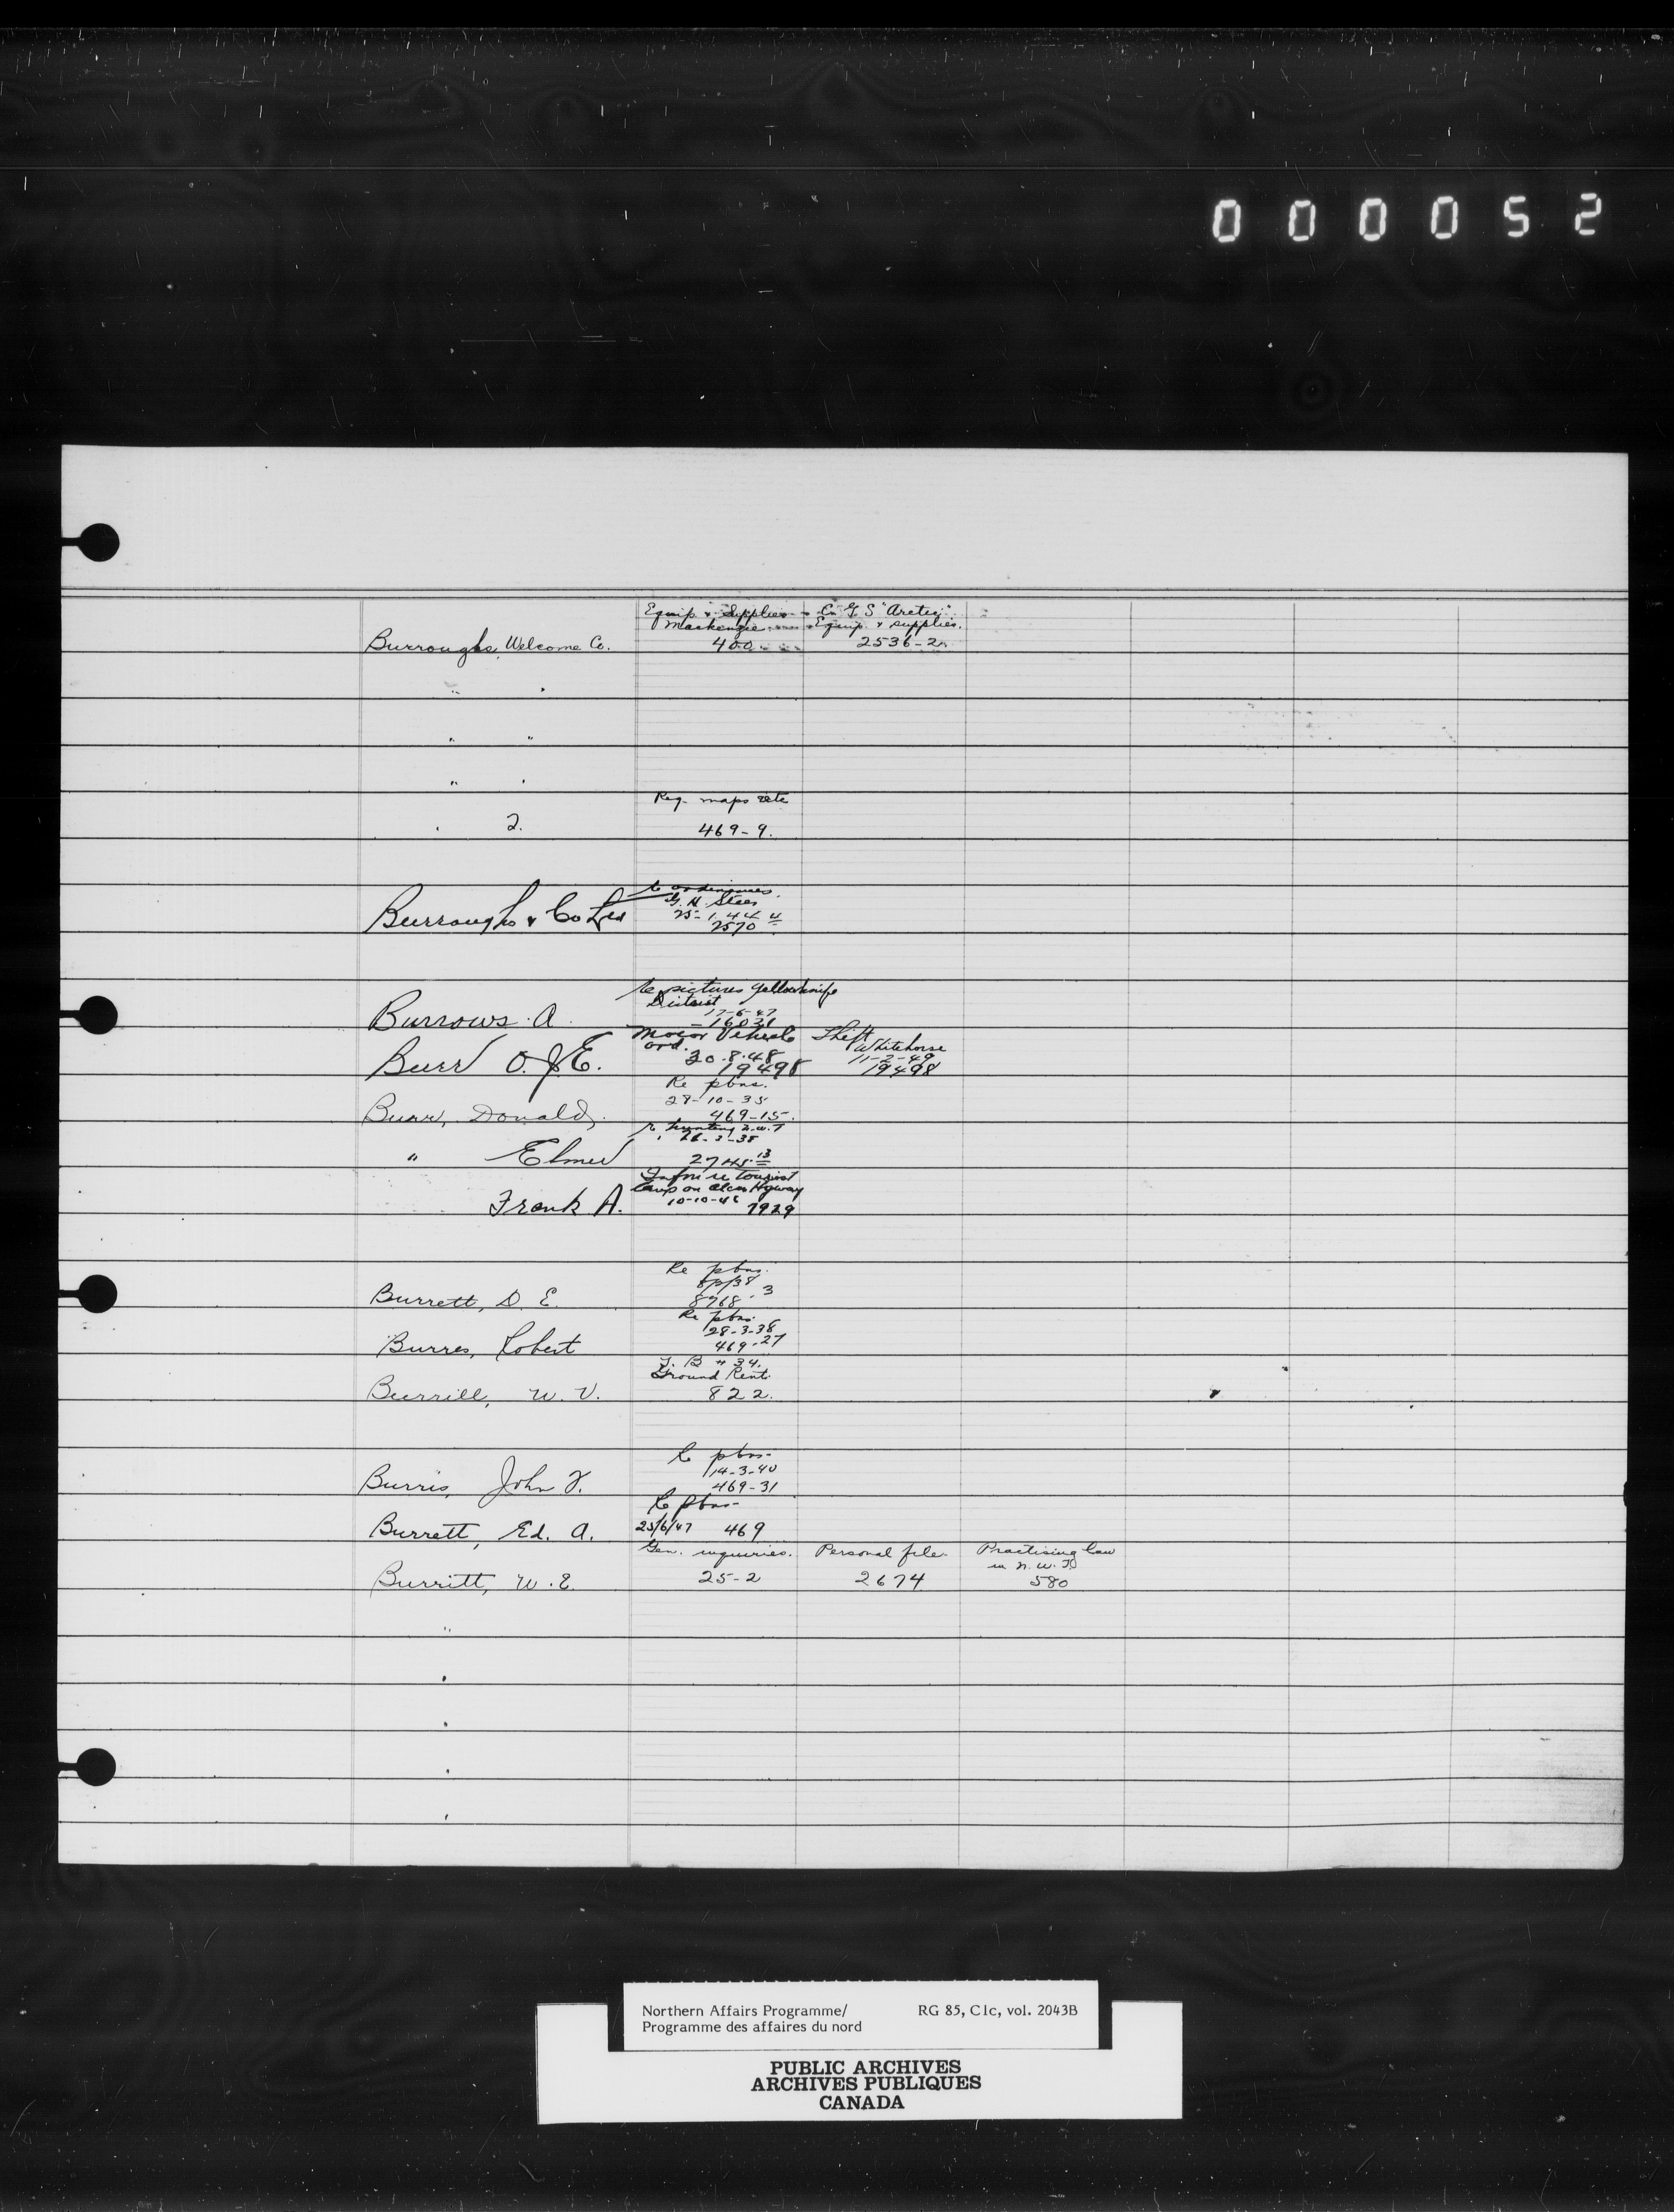 000052
Equip & Supplies C.G.S "Arctic"
Mackenzie Equip. & supplies.
Burroughs, Welcome Co. 400 2536-2
" "
" "
" "
Reg. maps etc
" 2. 469-9.
Re ordinances
Burroughs & Co Ltd
25-1-44
2570
Re pictures Yellowknife
District
17-6-47
Burrows A. 16021
Motor Vehicle Theft
ord. Whitehorse
20.8.48 11-2-49
Burr O. J. E. 19498 19498
Re pbns.
28-10-35
Burr, Donald, 469-15.
Re hunting N.W.T
26-3-38
" Elmer 2745-13
Infm re tourist
Camp on Alcan Hgway
10-10-46
Frank A. 7929
Re pbns.
8/2/38
Burrett, D. E. 8768-3
Re pbns.
28-3-38
Burres, Robert 469-27
T. B # 34.
Ground Rent.
Burrill, W. V. 822.
Re pbns-
14-3-40
Burris, John F. 469-31
Re pbns-
Burrett, Ed. A. 25/6/47 469
Gen. inquiries. Personal file. Practising law
in N.W.T.
Burritt, W. E. 25-2 2674 580
"
"
"
"
"
Northern Affairs Programme/ RG 85, C1c, vol. 2043B
Programme des affaires du nord
PUBLIC ARCHIVES
ARCHIVES PUBLIQUES
CANADA